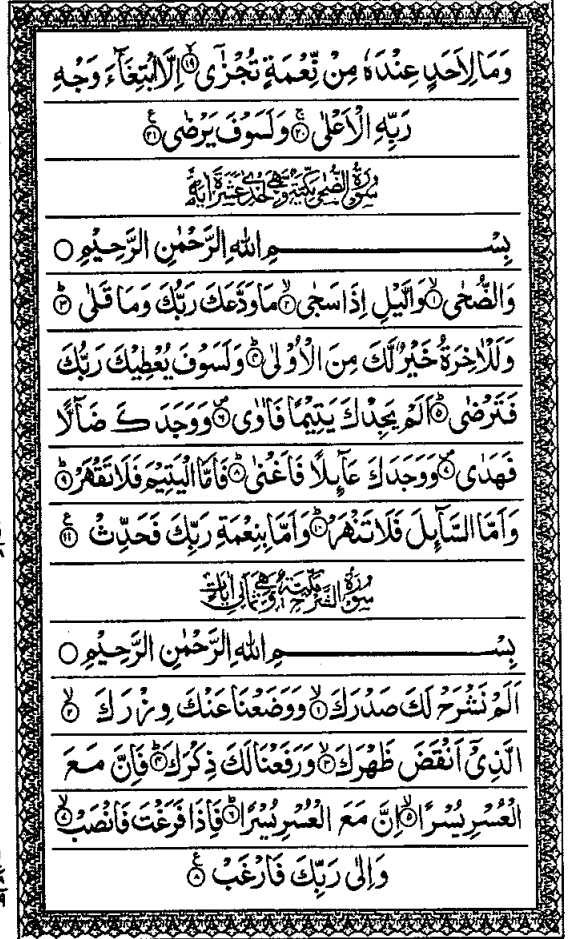 وَمَا لِاَحَدٍ عِنْدَهٗ مِنْ نِّعْمَةٍ تُجْزٰٓى ۙ﴿۱۹﴾ اِلَّا ابْتِغَآءَ وَجْهِ
رَبِّهِ الْاَعْلٰى ۚ﴿۲۰﴾ وَلَسَوْفَ يَرْضٰى ﴿۲۱﴾ ع
سُوْرَةُ الضُّحٰى مَكِّيَّةٌ وَّهِيَ اِحْدٰى عَشَرَةَ اٰيَةً
بِسْمِ اللّٰهِ الرَّحْمٰنِ الرَّحِيْمِ ○
وَالضُّحٰى ۙ﴿۱﴾ وَالَّيْلِ اِذَا سَجٰى ۙ﴿۲﴾ مَا وَدَّعَكَ رَبُّكَ وَمَا قَلٰى ؕ﴿۳﴾
وَلَلْاٰخِرَةُ خَيْرٌ لَّكَ مِنَ الْاُوْلٰى ؕ﴿۴﴾ وَلَسَوْفَ يُعْطِيْكَ رَبُّكَ
فَتَرْضٰى ؕ﴿۵﴾ اَلَمْ يَجِدْكَ يَتِيْمًا فَاٰوٰى ۪﴿۶﴾ وَوَجَدَكَ ضَآلًّا
فَهَدٰى ۪﴿۷﴾ وَوَجَدَكَ عَآئِلًا فَاَغْنٰى ؕ﴿۸﴾ فَاَمَّا الْيَتِيْمَ فَلَا تَقْهَرْ ؕ﴿۹﴾
وَاَمَّا السَّآئِلَ فَلَا تَنْهَرْ ؕ﴿۱۰﴾ وَاَمَّا بِنِعْمَةِ رَبِّكَ فَحَدِّثْ ﴿۱۱﴾ ع
سُوْرَةُ الشَّرْحِ مَكِّيَّةٌ وَّهِيَ ثَمَانِيْ اٰيَاتٍ
بِسْمِ اللّٰهِ الرَّحْمٰنِ الرَّحِيْمِ ○
اَلَمْ نَشْرَحْ لَكَ صَدْرَكَ ۙ﴿۱﴾ وَوَضَعْنَا عَنْكَ وِزْرَكَ ۙ﴿۲﴾
الَّذِيْۤ اَنْقَضَ ظَهْرَكَ ۙ﴿۳﴾ وَرَفَعْنَا لَكَ ذِكْرَكَ ؕ﴿۴﴾ فَاِنَّ مَعَ
الْعُسْرِ يُسْرًا ۙ﴿۵﴾ اِنَّ مَعَ الْعُسْرِ يُسْرًا ؕ﴿۶﴾ فَاِذَا فَرَغْتَ فَانْصَبْ ۙ﴿۷﴾
وَاِلٰى رَبِّكَ فَارْغَبْ ﴿۸﴾ ع